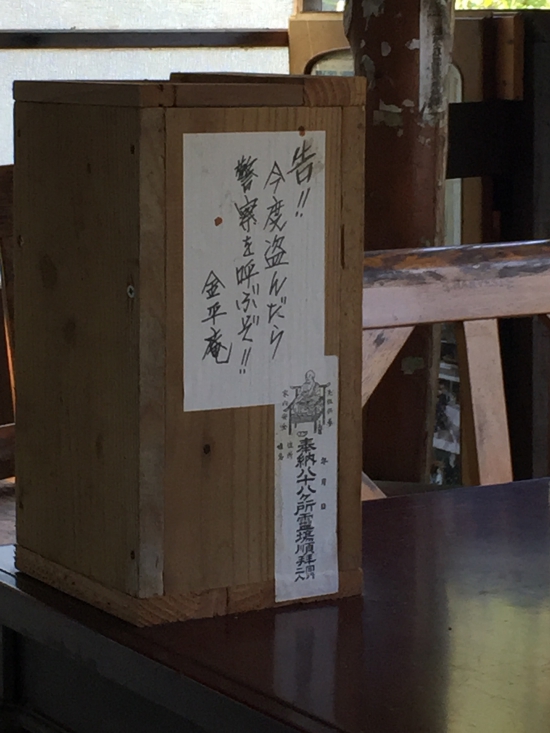 告!!
今度盗んだら
警察を呼ぶぞ!!
金平庵
年月日
奉納八十八ヶ所霊場順拝
同行二人
住所